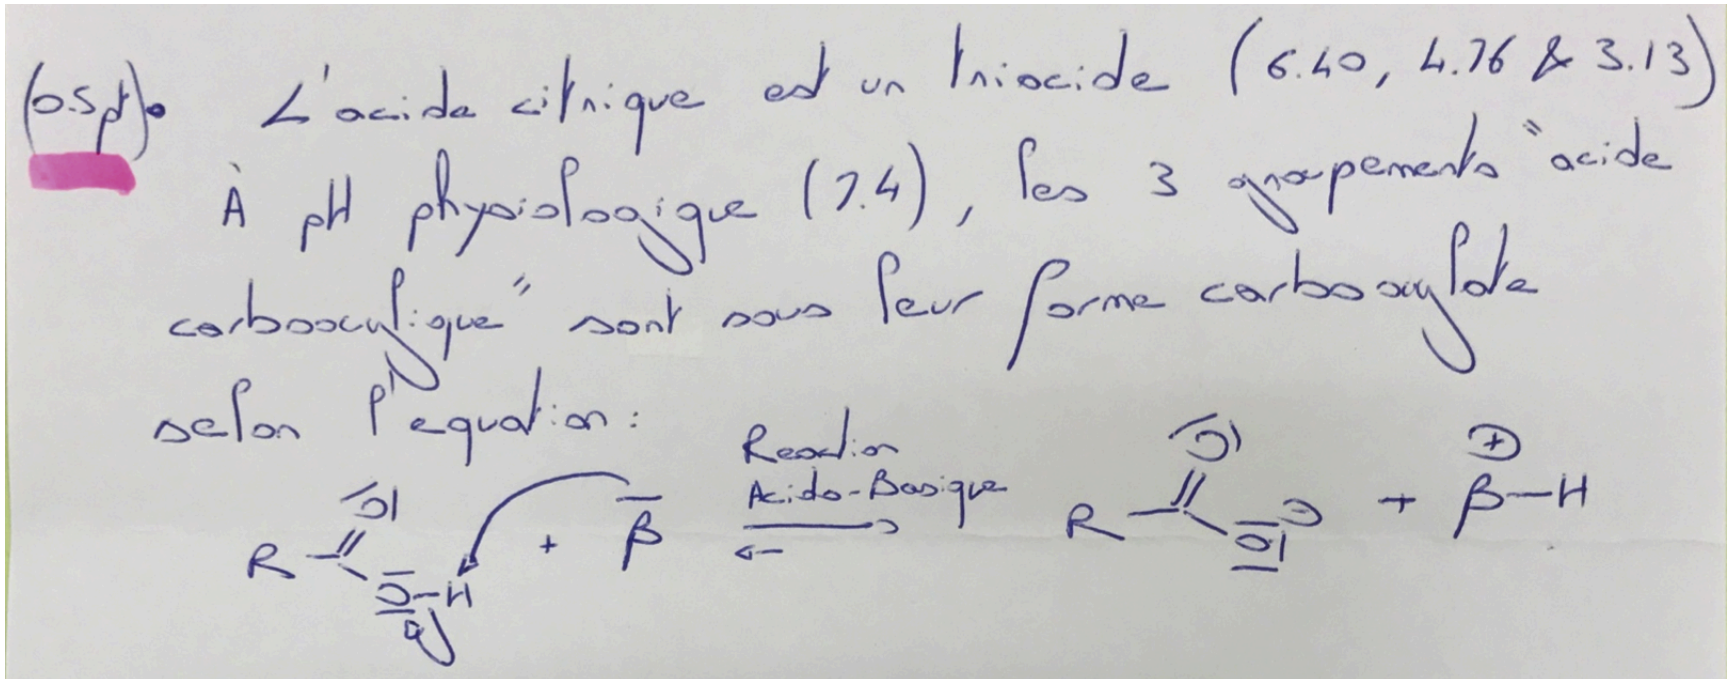 (0.5pt). L'acide citrique est un triacide (6.40, 4.76 & 3.13)
À pH physiologique (7.4), les 3 groupements "acide
carboxylique" sont sous leur forme carboxylate
selon l'equation:
Reaction
Acido-Basique
R O O-H + B ⇌ R O O ⊖ + ⊕ B-H